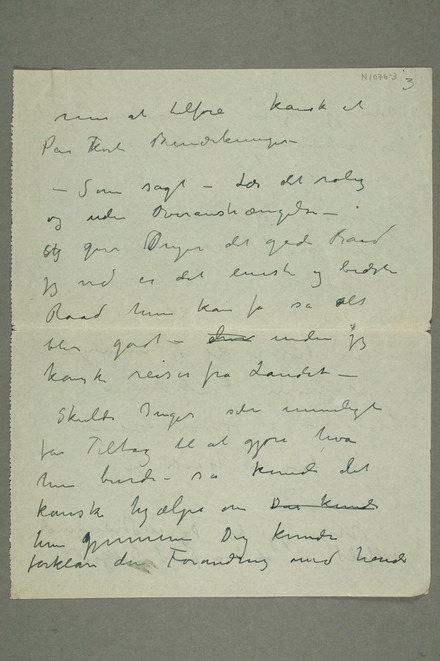 N1076-3
3
at tilføie kansk et
Par Korte Bemærkninger
– Som sagt – Les det rolig
og uden Overanstrængelse –
giv Inger det gode Raad
jeg ved er det eneste og bedste
Raad hun kan få så alt
blir godt – inden jeg
kansk reiser fra Landet –
Skulde Inger umuligt
få Tiltag til at gjøre hva
hun burde – så kunde det
kansk hjælpe om Du kunde
hun gjennem Dig kunde
forklare den Forandring med hende